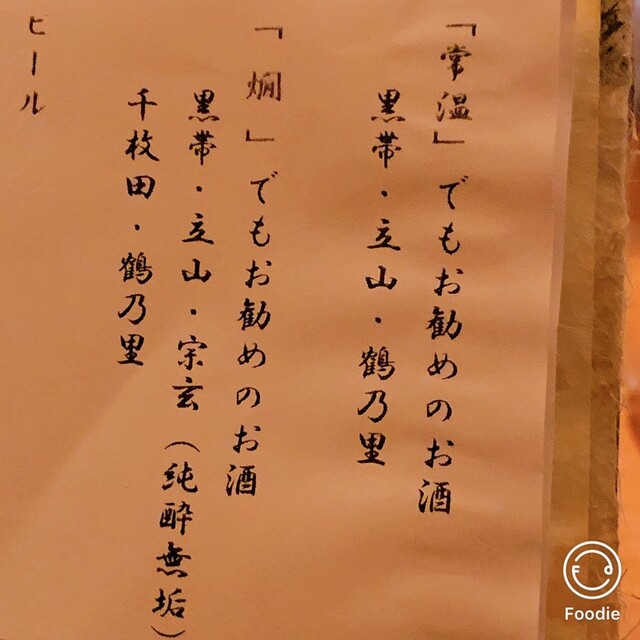 「常温」でもお勧めのお酒
黒帯・立山・鶴乃里
「燗」でもお勧めのお酒
黒帯・立山・宗玄(純酔無垢)
千枚田・鶴乃里
ビール
Foodie